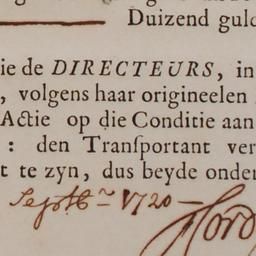 Duizend guld
ie de DIRECTEURS, in
, volgens haar origineelen
Actie op die Conditie aan
: den Tranſportant ver
t te zyn, dus beyde onder
Septbr 1720